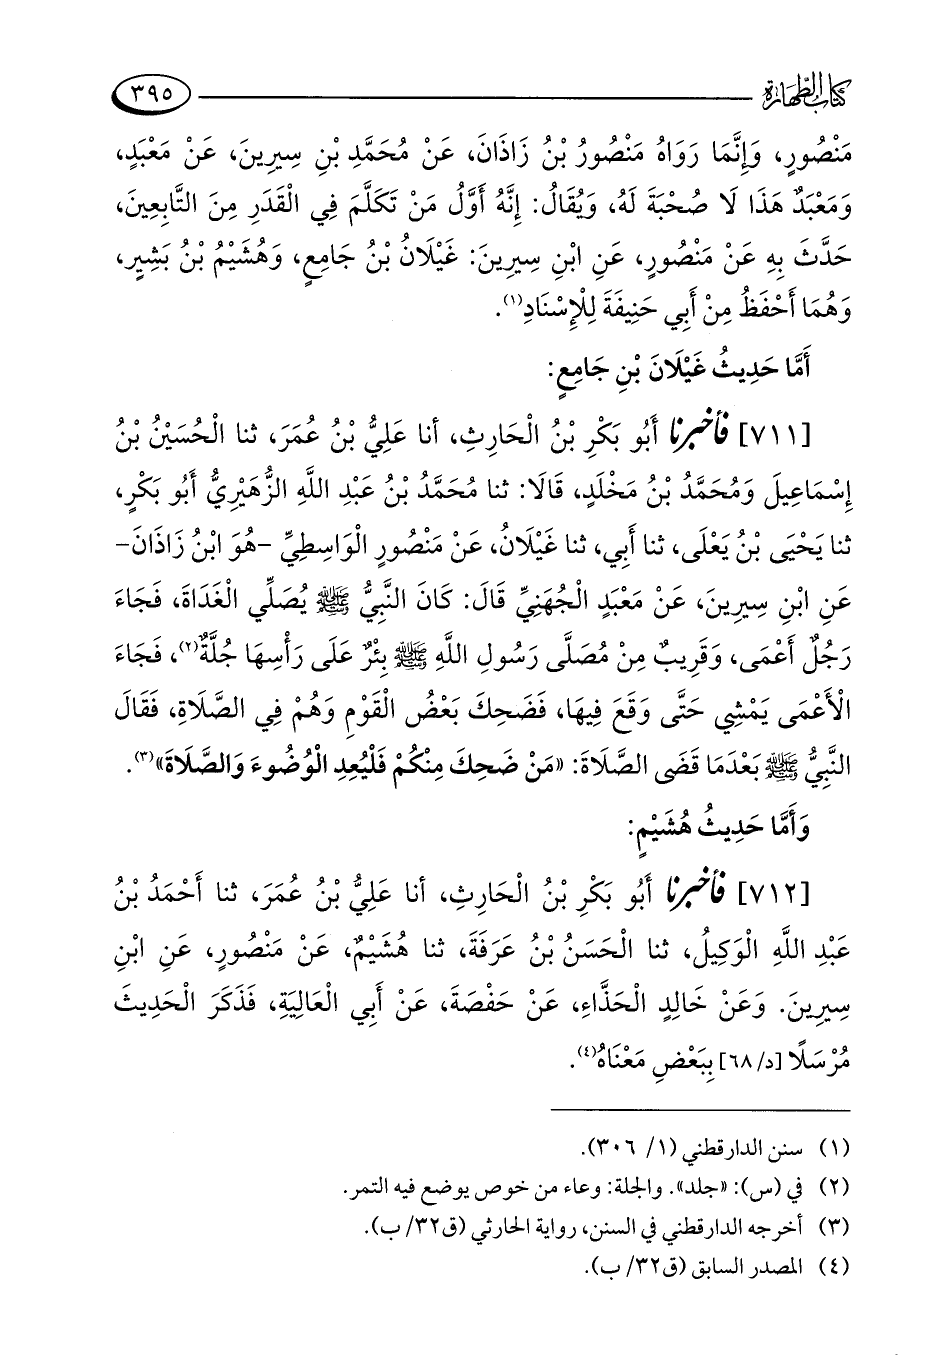 كتاب الطهارة ٣٩٥
مَنْصُورٍ، وَإِنَّمَا رَوَاهُ مَنْصُورُ بْنُ زَاذَانَ، عَنْ مُحَمَّدِ بْنِ سِيرِينَ، عَنْ مَعْبَدٍ،
وَمَعْبَدٌ هَذَا لَا صُحْبَةَ لَهُ، وَيُقَالُ: إِنَّهُ أَوَّلُ مَنْ تَكَلَّمَ فِي الْقَدَرِ مِنَ التَّابِعِينَ،
حَدَّثَ بِهِ عَنْ مَنْصُورٍ، عَنِ ابْنِ سِيرِينَ: غَيْلَانُ بْنُ جَامِعٍ، وَهُشَيْمُ بْنُ بَشِيرٍ،
وَهُمَا أَحْفَظُ مِنْ أَبِي حَنِيفَةَ لِلْإِسْنَادِ(١).
أَمَّا حَدِيثُ غَيْلَانَ بْنِ جَامِعٍ:
[٧١١] فأخبرنا أَبُو بَكْرِ بْنُ الْحَارِثِ، أنا عَلِيُّ بْنُ عُمَرَ، ثنا الْحُسَيْنُ بْنُ
إِسْمَاعِيلَ وَمُحَمَّدُ بْنُ مَخْلَدٍ، قَالَا: ثنا مُحَمَّدُ بْنُ عَبْدِ اللَّهِ الزُّهَيْرِيُّ أَبُو بَكْرٍ،
ثنا يَحْيَى بْنُ يَعْلَى، ثنا أَبِي، ثنا غَيْلَانُ، عَنْ مَنْصُورٍ الْوَاسِطِيِّ -هُوَ ابْنُ زَاذَانَ-
عَنِ ابْنِ سِيرِينَ، عَنْ مَعْبَدٍ الْجُهَنِيِّ قَالَ: كَانَ النَّبِيُّ ﷺ يُصَلِّي الْغَدَاةَ، فَجَاءَ
رَجُلٌ أَعْمَى، وَقَرِيبٌ مِنْ مُصَلَّى رَسُولِ اللَّهِ ﷺ بِئْرٌ عَلَى رَأْسِهَا جُلَّةٌ(٢)، فَجَاءَ
الْأَعْمَى يَمْشِي حَتَّى وَقَعَ فِيهَا، فَضَحِكَ بَعْضُ الْقَوْمِ وَهُمْ فِي الصَّلَاةِ، فَقَالَ
النَّبِيُّ ﷺ بَعْدَمَا قَضَى الصَّلَاةَ: «مَنْ ضَحِكَ مِنْكُمْ فَلْيُعِدِ الْوُضُوءَ وَالصَّلَاةَ»(٣).
وَأَمَّا حَدِيثُ هُشَيْمٍ:
[٧١٢] فأخبرنا أَبُو بَكْرِ بْنُ الْحَارِثِ، أنا عَلِيُّ بْنُ عُمَرَ، ثنا أَحْمَدُ بْنُ
عَبْدِ اللَّهِ الْوَكِيلُ، ثنا الْحَسَنُ بْنُ عَرَفَةَ، ثنا هُشَيْمٌ، عَنْ مَنْصُورٍ، عَنِ ابْنِ
سِيرِينَ. وَعَنْ خَالِدٍ الْحَذَّاءِ، عَنْ حَفْصَةَ، عَنْ أَبِي الْعَالِيَةِ، فَذَكَرَ الْحَدِيثَ
مُرْسَلًا [د/ ٦٨] بِبَعْضِ مَعْنَاهُ(٤).
(١) سنن الدارقطني (١/ ٣٠٦).
(٢) في (س): «جلد». والجلة: وعاء من خوص يوضع فيه التمر.
(٣) أخرجه الدارقطني في السنن، رواية الحارثي (ق٣٢/ ب).
(٤) المصدر السابق (ق٣٢/ ب).